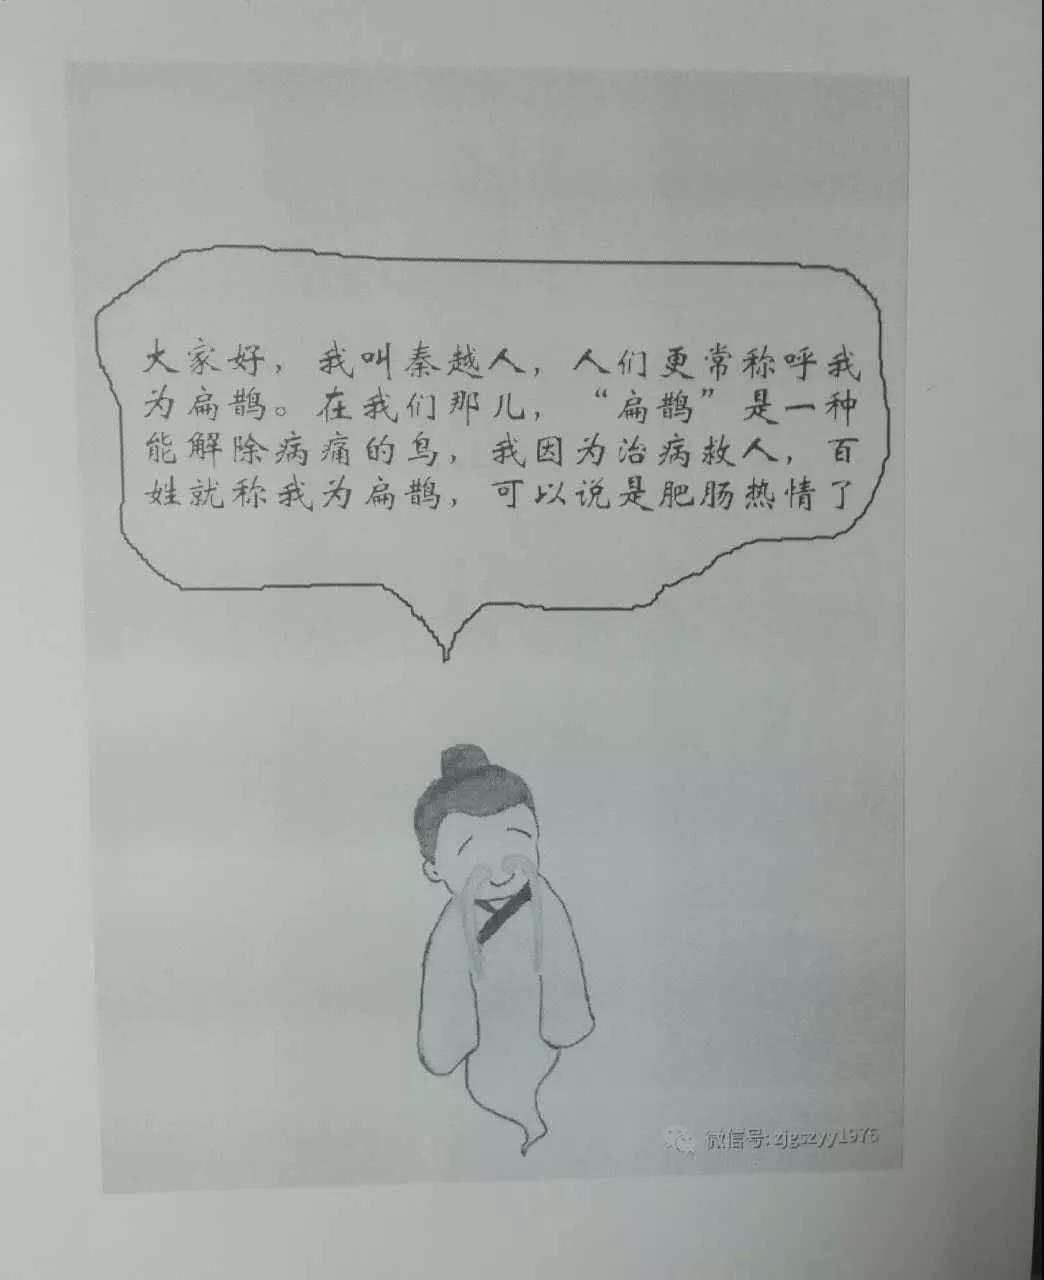 大家好，我叫秦越人，人们更常称呼我
为扁鹊。在我们那儿，“扁鹊”是一种
能解除病痛的鸟，我因为治病救人，百
姓就称我为扁鹊，可以说是肥肠热情了
微信号:zjgszyy1976